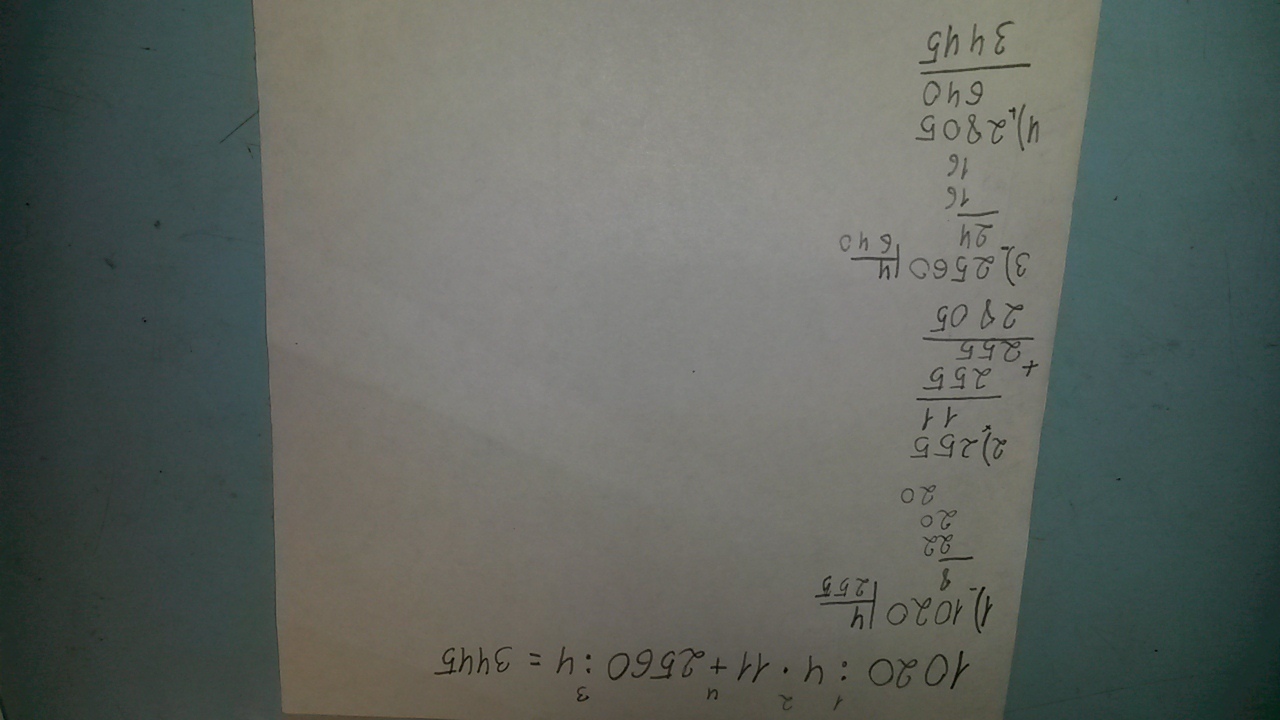 1 2 4 3
1020 : 4 · 11 + 2560 : 4 = 3445
1) - 1020 | 4
8 | 255
22
20
20
2) × 255
11
255
+ 255
2805
3) - 2560 | 4
24 | 640
16
16
4) + 2805
640
3445